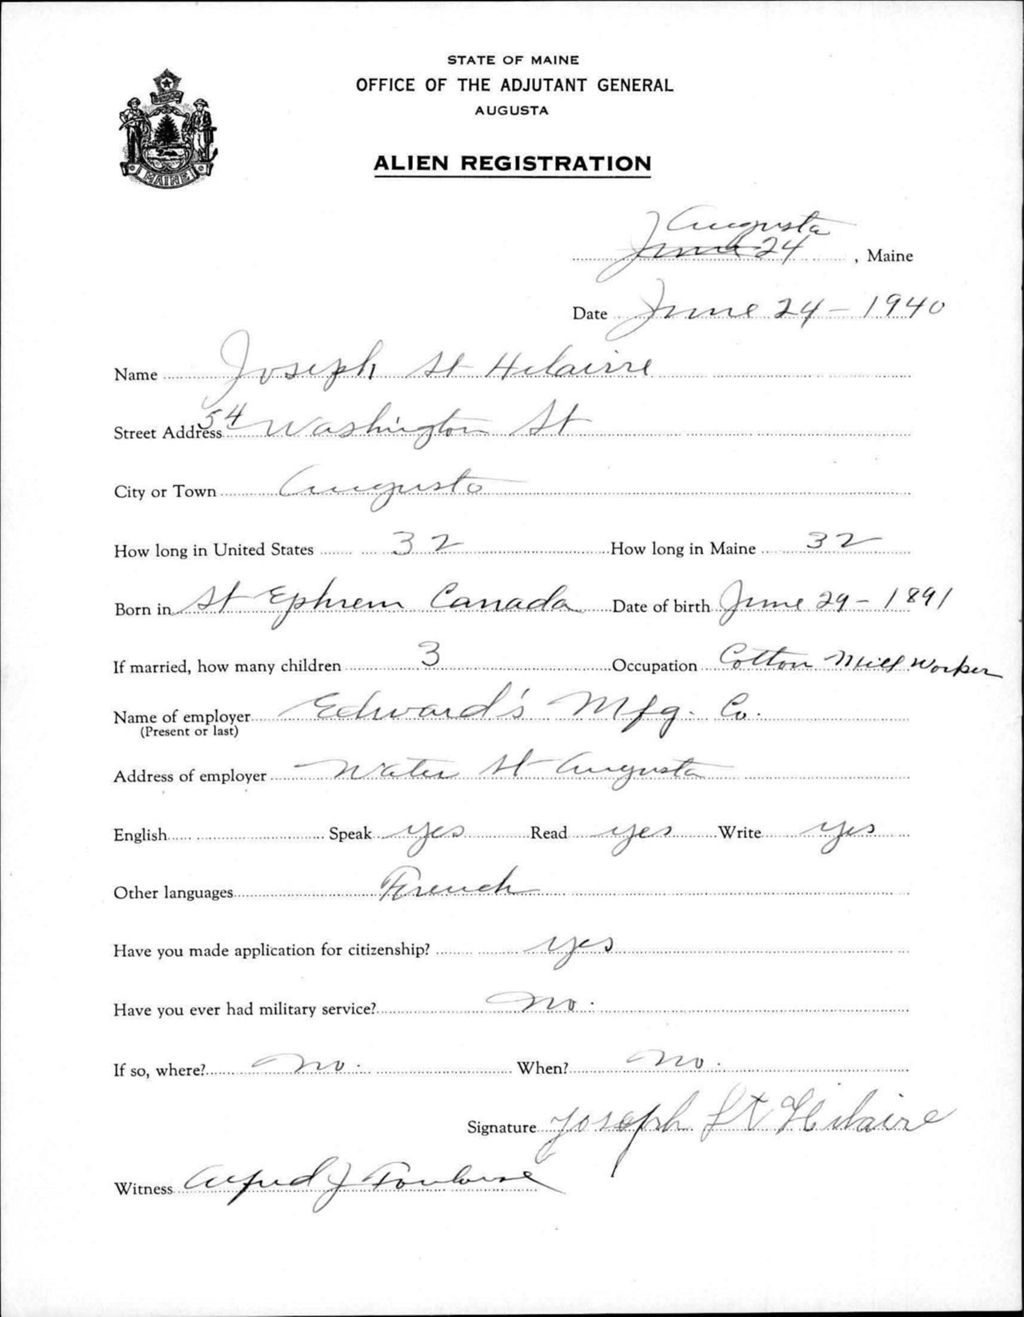 STATE OF MAINE
OFFICE OF THE ADJUTANT GENERAL
AUGUSTA
ALIEN REGISTRATION
MAINE
Augusta
June 24, Maine
Date June 24 - 1940
Name Joseph St Hilaire
Street Address 54 Washington St
City or Town Augusta
How long in United States 32 How long in Maine 32
Born in St Ephrem Canada Date of birth June 29 - 1891
If married, how many children 3 Occupation Cotton Mill Worker
Name of employer Edward's Mfg. Co.
(Present or last)
Address of employer Water St Augusta
English Speak yes Read yes Write yes
Other languages French
Have you made application for citizenship? yes
Have you ever had military service? no.
If so, where? no. When? no.
Signature Joseph St Hilaire
Witness Alfred J Toulouse